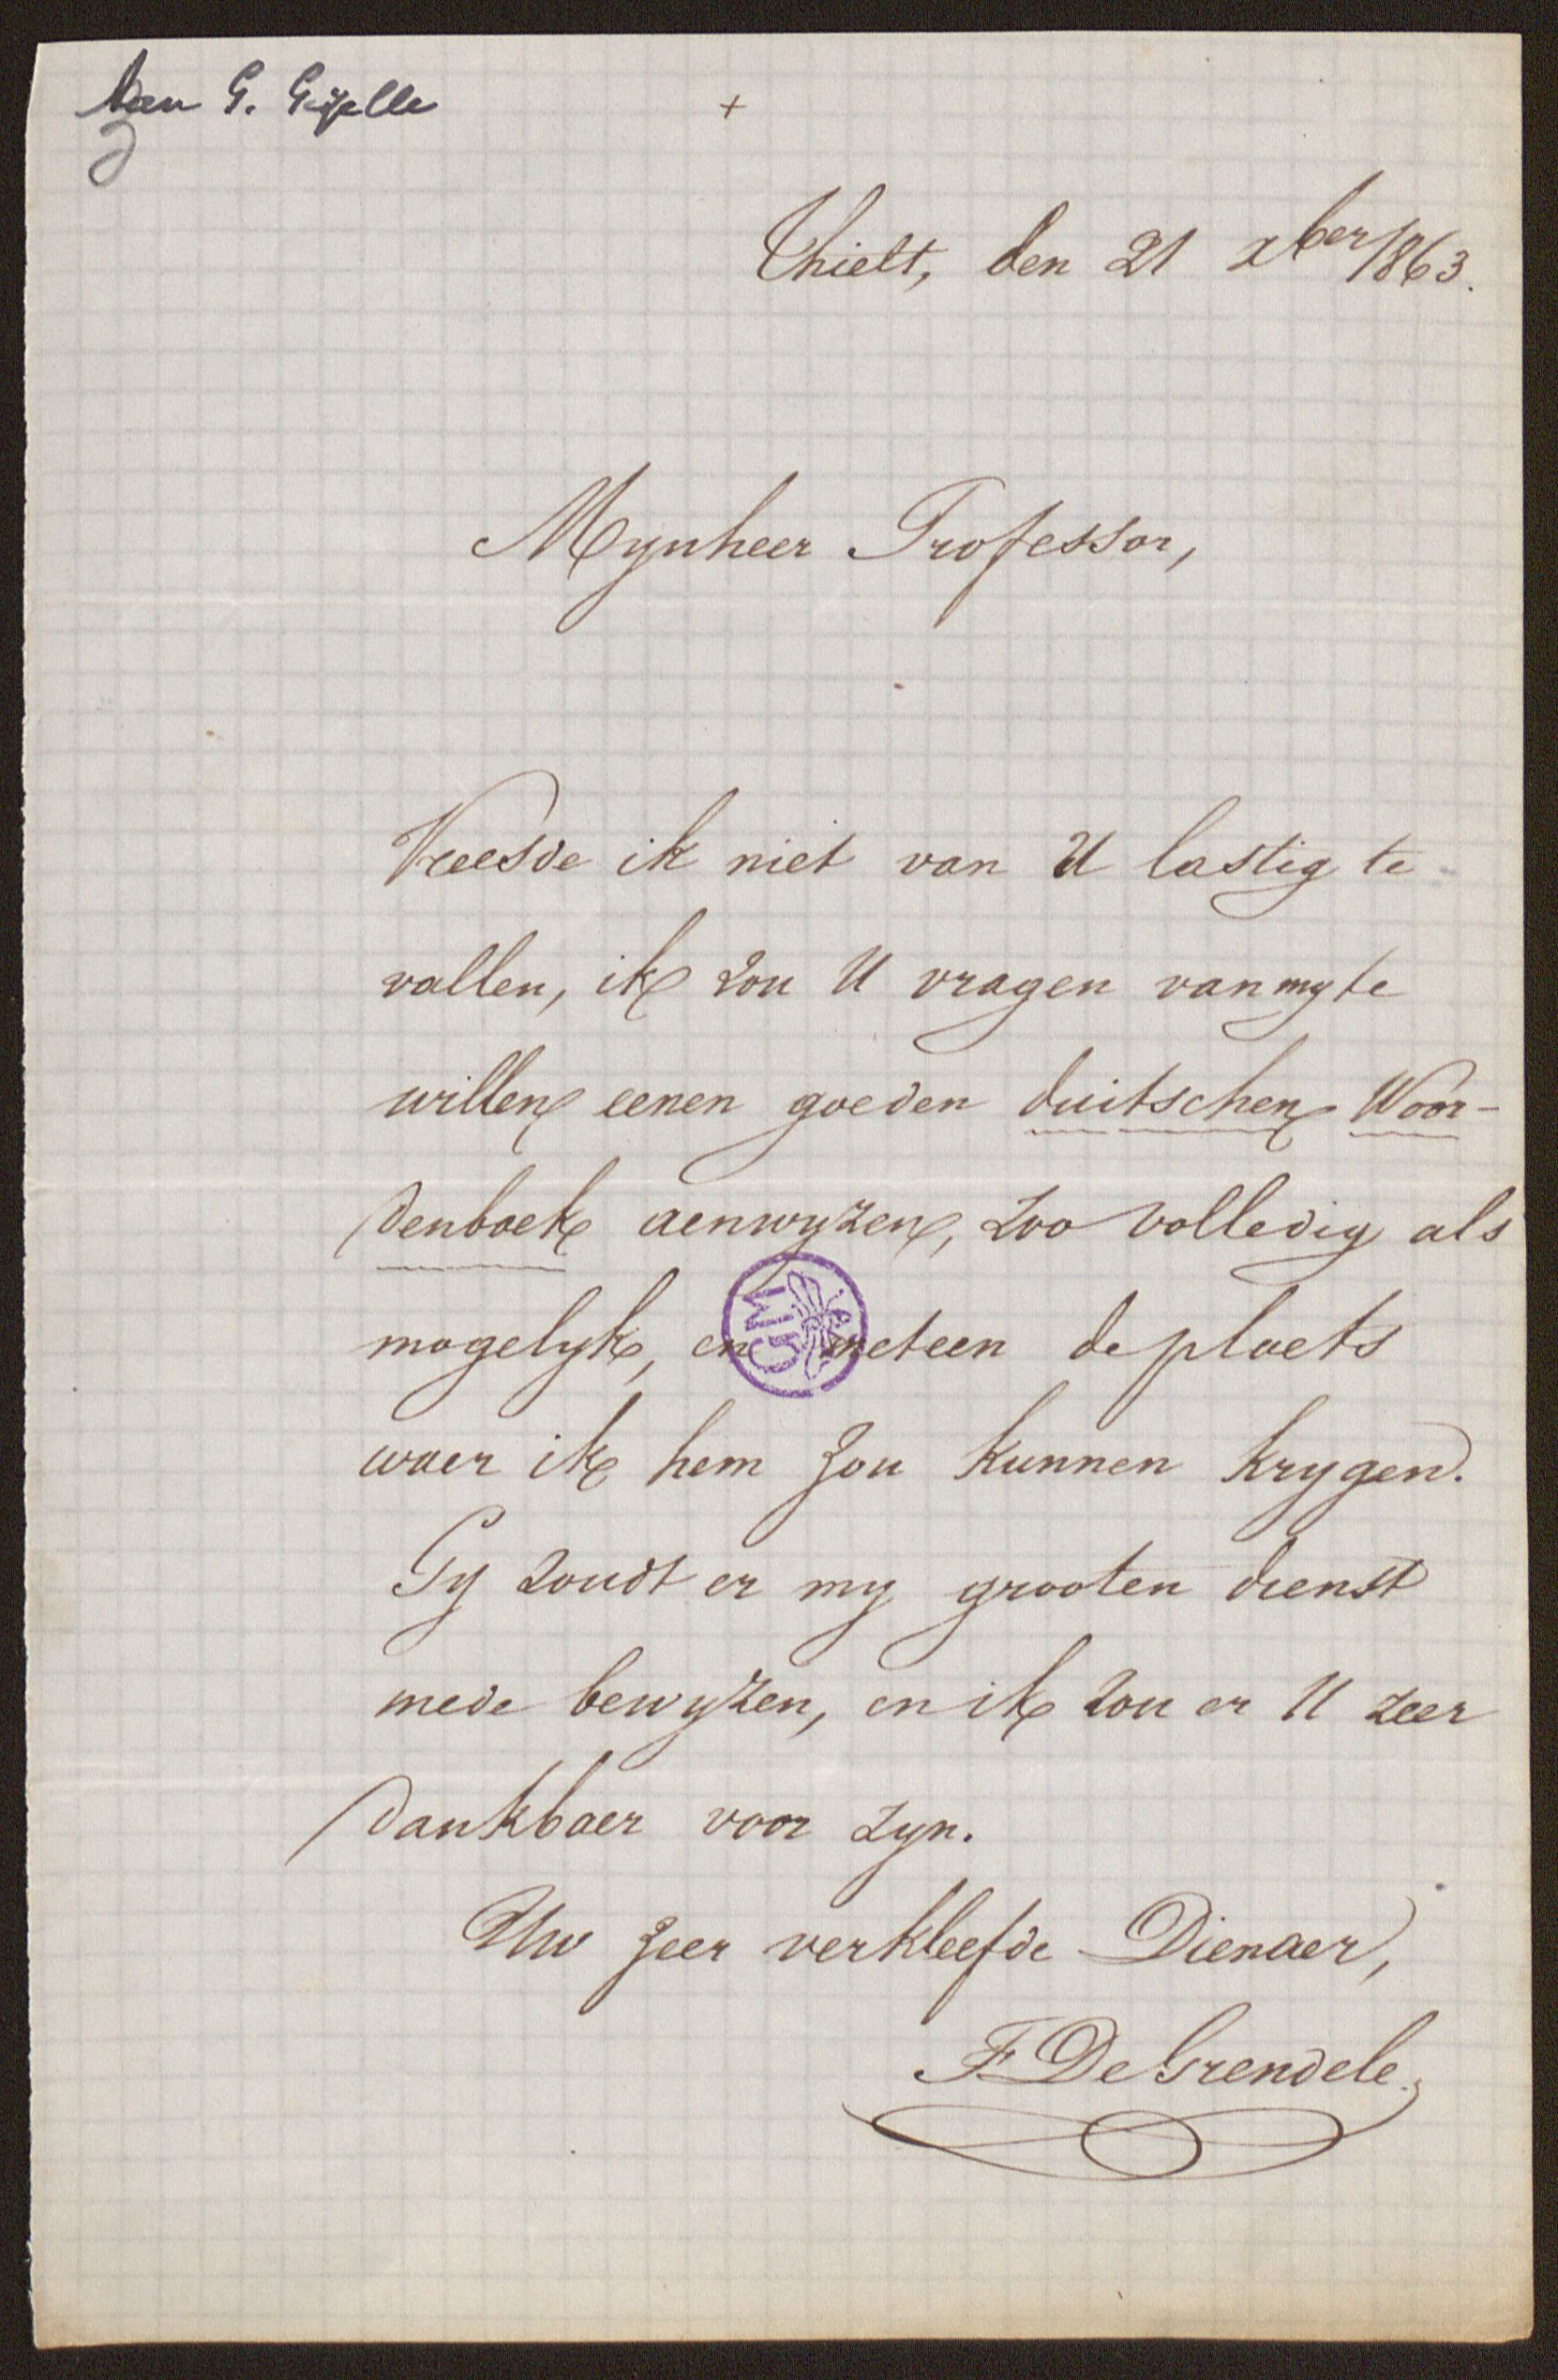 Aan G. Gezelle
+
Thielt, den 21 xber 1863.
Mynheer Professor,
Vreesde ik niet van U lastig te
vallen, ik zou U vragen van my te
willen eenen goeden duitschen Woor-
denboek aenwyzen, zoo volledig als
mogelyk, en meteen de plaets
waer ik hem zou kunnen krygen.
Gy zoudt er my grooten dienst
mede bewyzen, en ik zou er U zeer
dankbaer voor zyn.
Uw zeer verkleefde Dienaer,
F. De Grendele.
GM